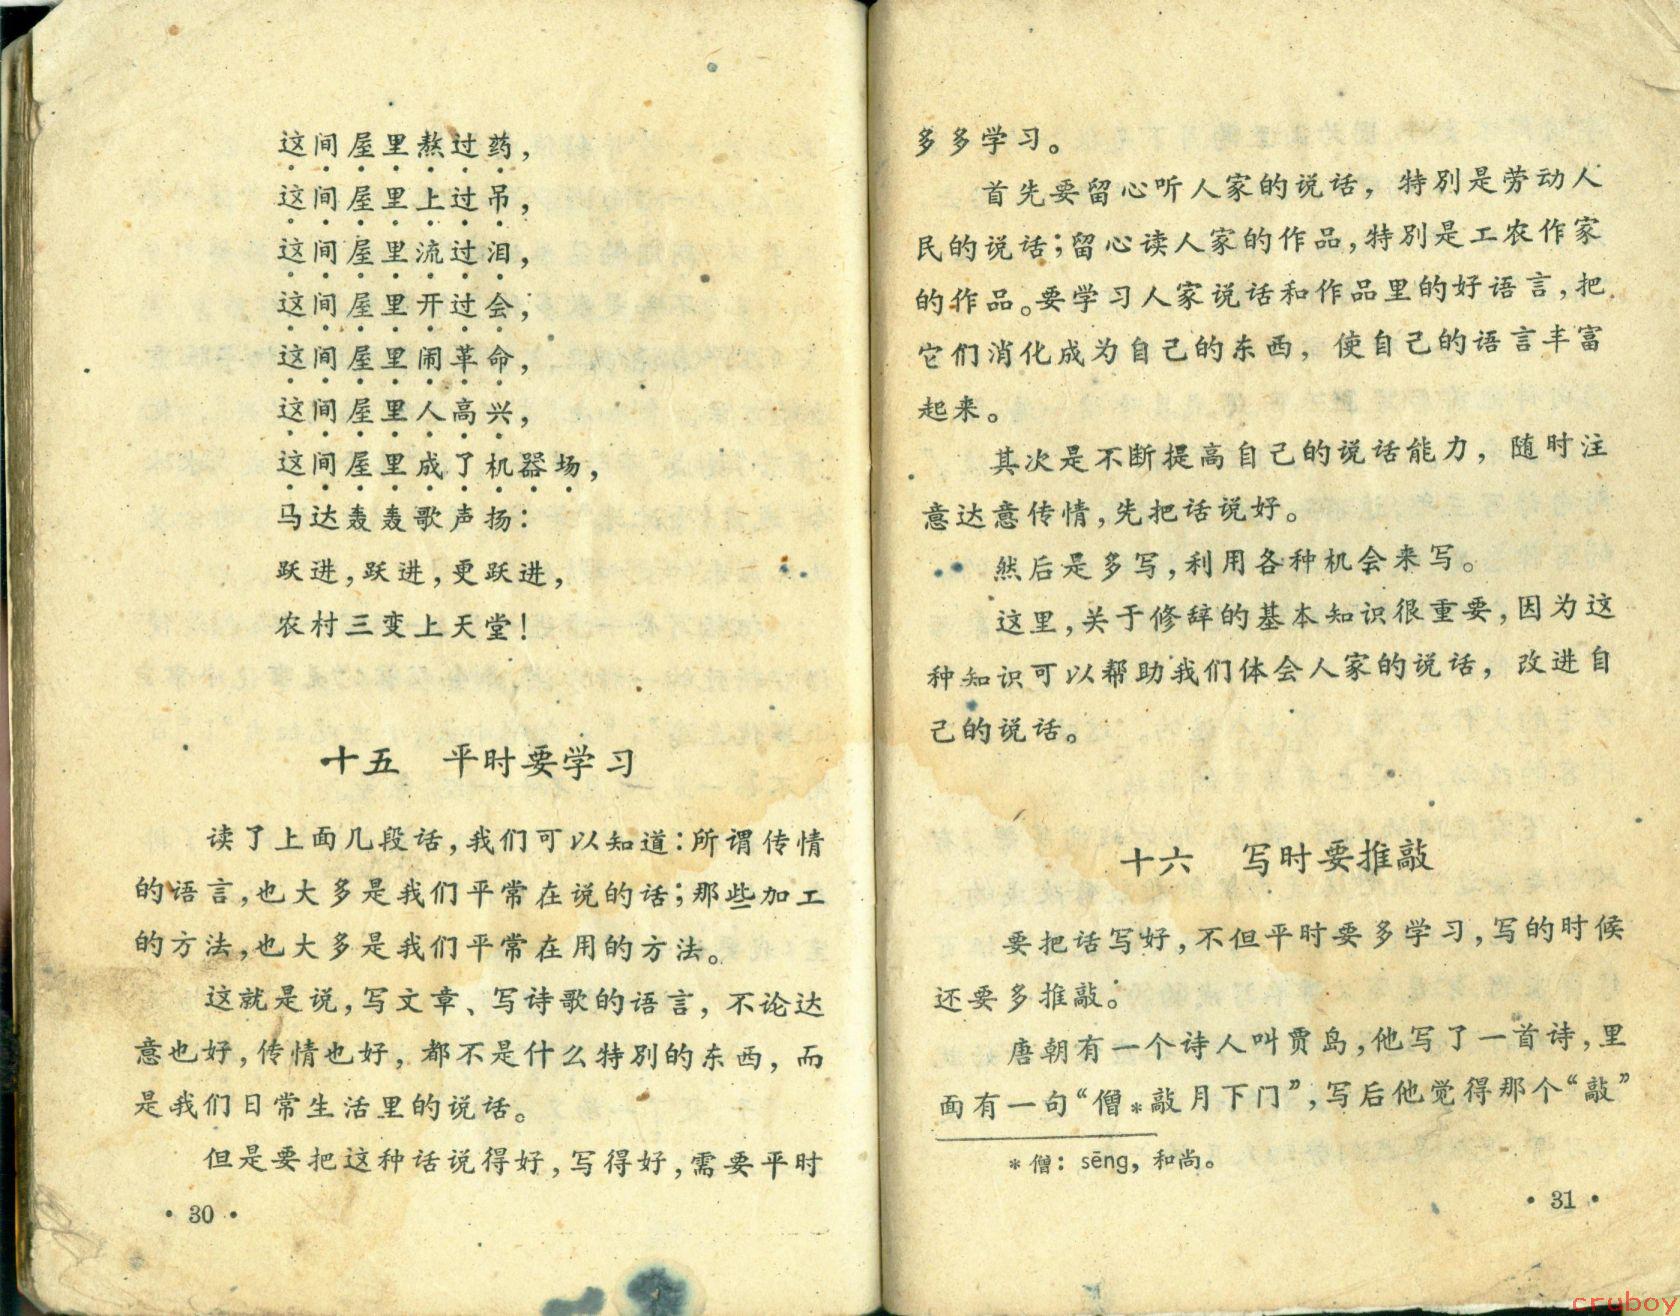 这间屋里熬过药，
这间屋里上过吊，
这间屋里流过泪，
这间屋里开过会，
这间屋里闹革命，
这间屋里人高兴，
这间屋里成了机器场，
马达轰轰歌声扬：
跃进，跃进，更跃进，
农村三变上天堂！
十五　平时要学习
读了上面几段话，我们可以知道：所谓传情
的语言，也大多是我们平常在说的话；那些加工
的方法，也大多是我们平常在用的方法。
这就是说，写文章、写诗歌的语言，不论达
意也好，传情也好，都不是什么特别的东西，而
是我们日常生活里的说话。
但是要把这种话说得好，写得好，需要平时
• 30 •
多多学习。
首先要留心听人家的说话，特别是劳动人
民的说话；留心读人家的作品，特别是工农作家
的作品。要学习人家说话和作品里的好语言，把
它们消化成为自己的东西，使自己的语言丰富
起来。
其次是不断提高自己的说话能力，随时注
意达意传情，先把话说好。
然后是多写，利用各种机会来写。
这里，关于修辞的基本知识很重要，因为这
种知识可以帮助我们体会人家的说话，改进自
己的说话。
十六　写时要推敲
要把话写好，不但平时要多学习，写的时候
还要多推敲。
唐朝有一个诗人叫贾岛，他写了一首诗，里
面有一句“僧*敲月下门”，写后他觉得那个“敲”
*僧：sēng，和尚。
• 31 •
cruboy